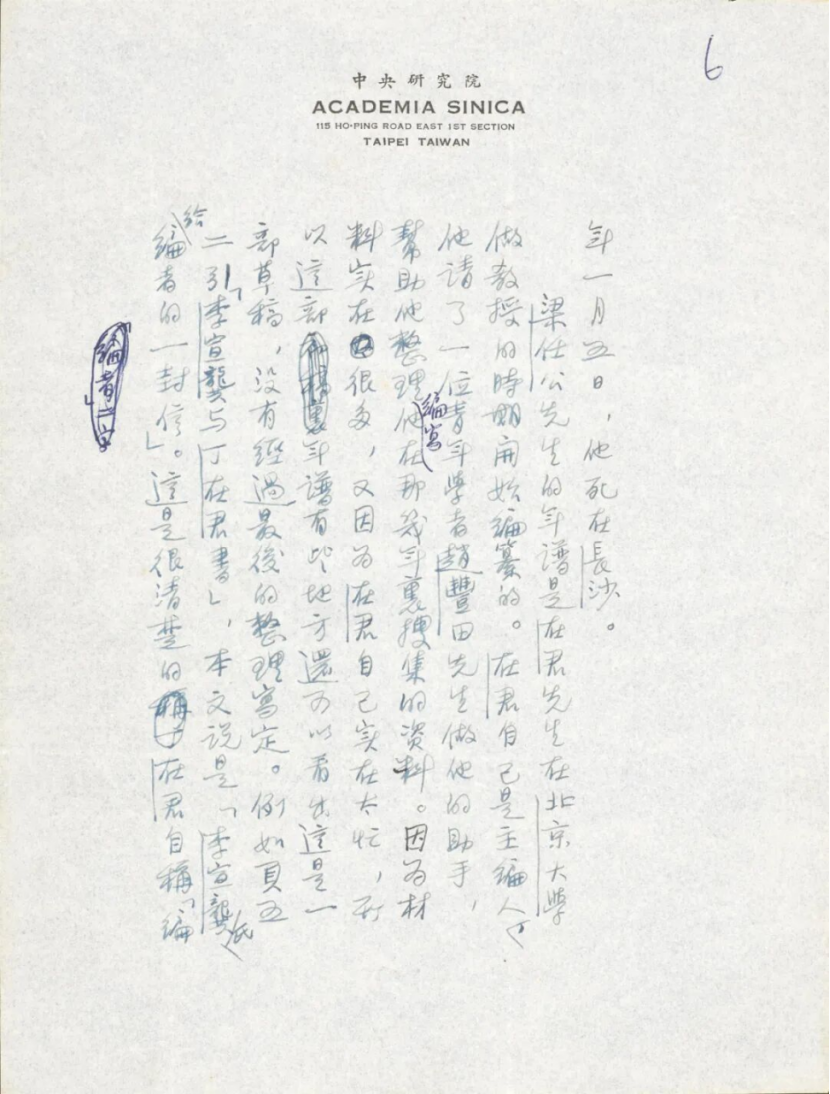 6
中央研究院
ACADEMIA SINICA
115 HO-PING ROAD EAST 1ST SECTION
TAIPEI TAIWAN
年一月五日，他死在長沙。
梁任公先生的年譜是在君先生在北京大學
做教授的時期開始編纂的。在君自己是主編人，
他請了一位青年學者趙豐田先生做他的助手，
幫助他整理編寫他在那幾年裏搜集的資料。因為材
料實在很多，又因為在君自己實在太忙，所
以這部年譜有些地方還可以看出這是一
部草稿，沒有經過最後的整理寫定。例如頁五
二引「李宣龔與丁在君書」，本文說是「李宣龔氏
給編者的一封信」。這是很清楚的在君自稱「編
編者二字